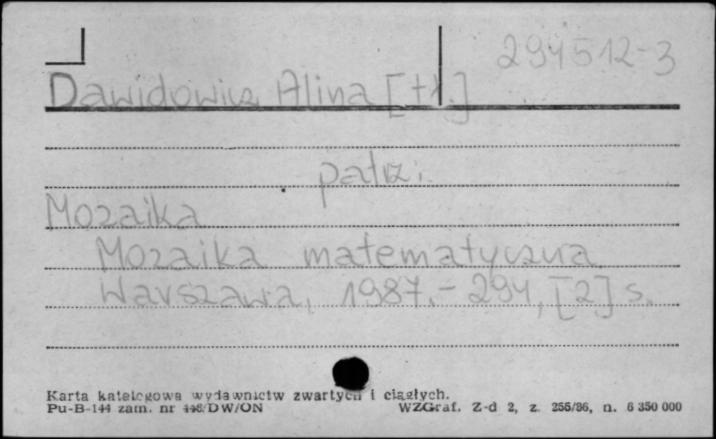 294512-3
Dawidowicz Alina [tł.]
patrz:
Mozaika
Mozaika matematyczna
Warszawa, 1987.- 294, [2] s.
Karta katalogowa wydawnictw zwartych i ciągłych.
Pu-B-144 zam. nr 446/DW/ON WZGraf. Z-d 2, z. 255/86, n. 6 350 000